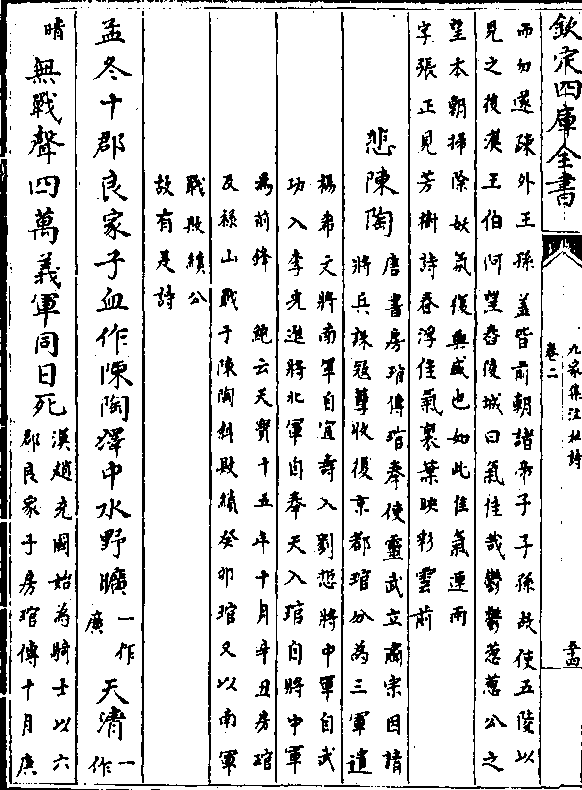 欽定四庫全書
卷二
九家集注杜詩
而勿遂疎外王孫蓋皆前朝諸帝子子孫故使五陵以
見之後漢王伯阿望舂陵城曰氣佳哉鬱鬱葱葱公之
望本朝掃除妖氛復興盛也如此佳氣運而
字張正見芳樹詩春浮佳氣裏葉映彩雲前
悲陳陶
唐書房琯傳琯奉使靈武立肅宗因請
將兵誅寇孽收復京都琯分為三軍遣
楊希文將南軍自宜壽入劉悊將中軍自武
功入李光進將北軍自奉天入琯自將中軍
為前鋒 鮑云天寶十五年十月辛丑房琯
及祿山戰于陳陶斜敗績癸卯琯又以南軍
戰敗績公
故有是詩
孟冬十郡良家子血作陳陶澤中水野曠
一作
廣
天清
一
作
晴
無戰聲四萬義軍同日死
漢趙充國始為騎士以六
郡良家子房琯傳十月庚